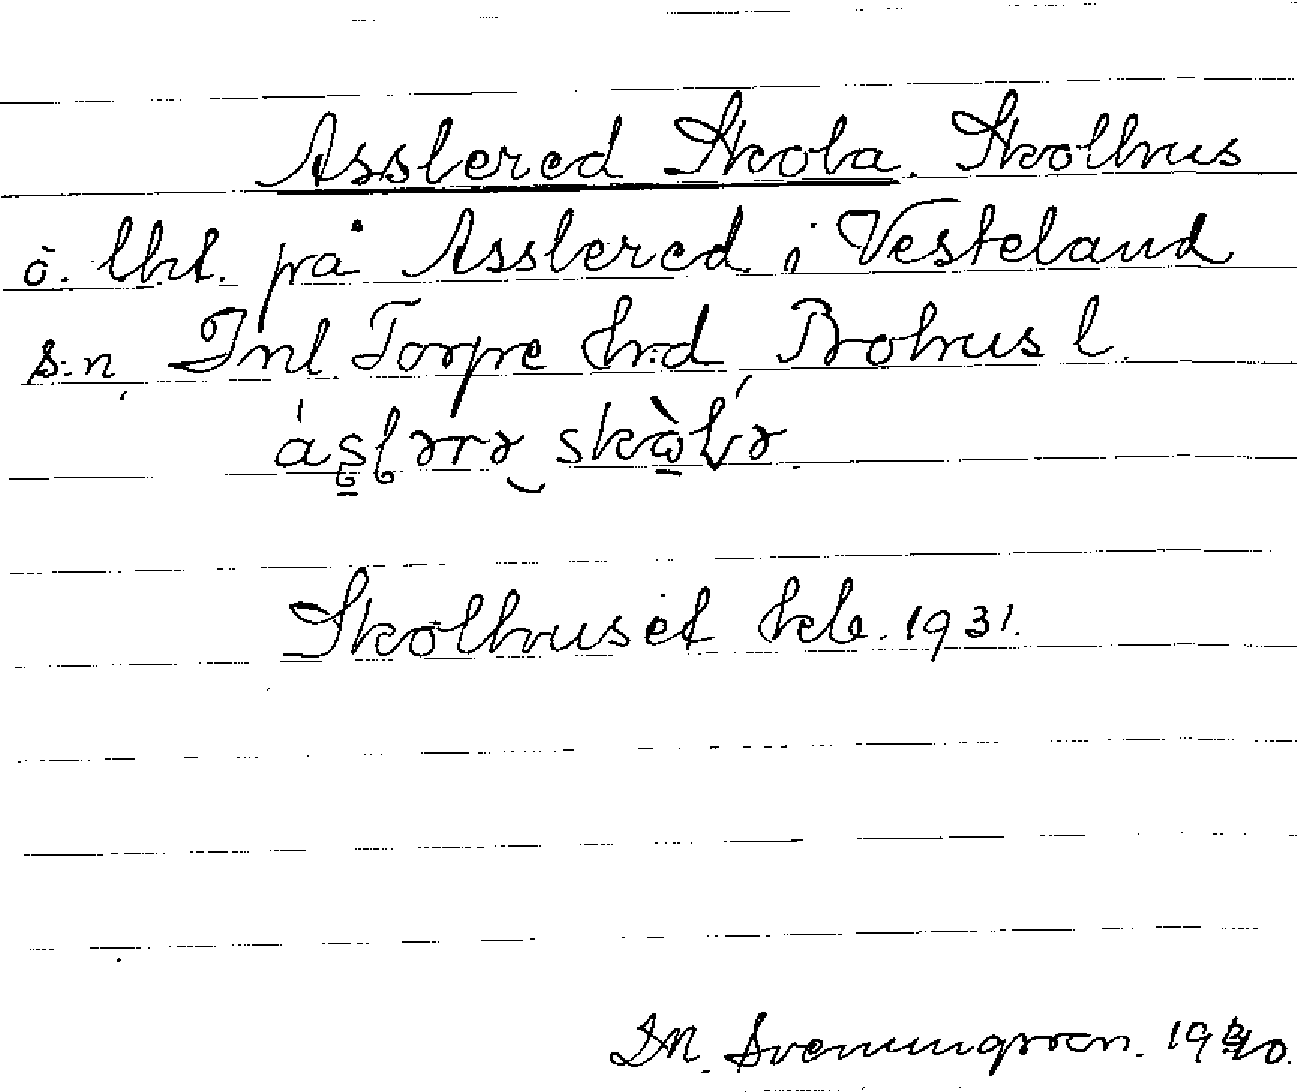 Asslered Skola. Skolhus
o. lht. på Asslered i Vesteland
s:n, Inl Torpe hrd Bohus l.
skolhuset
Skolhuset heb. 1931.
D.M. Sveningsson. 1940.